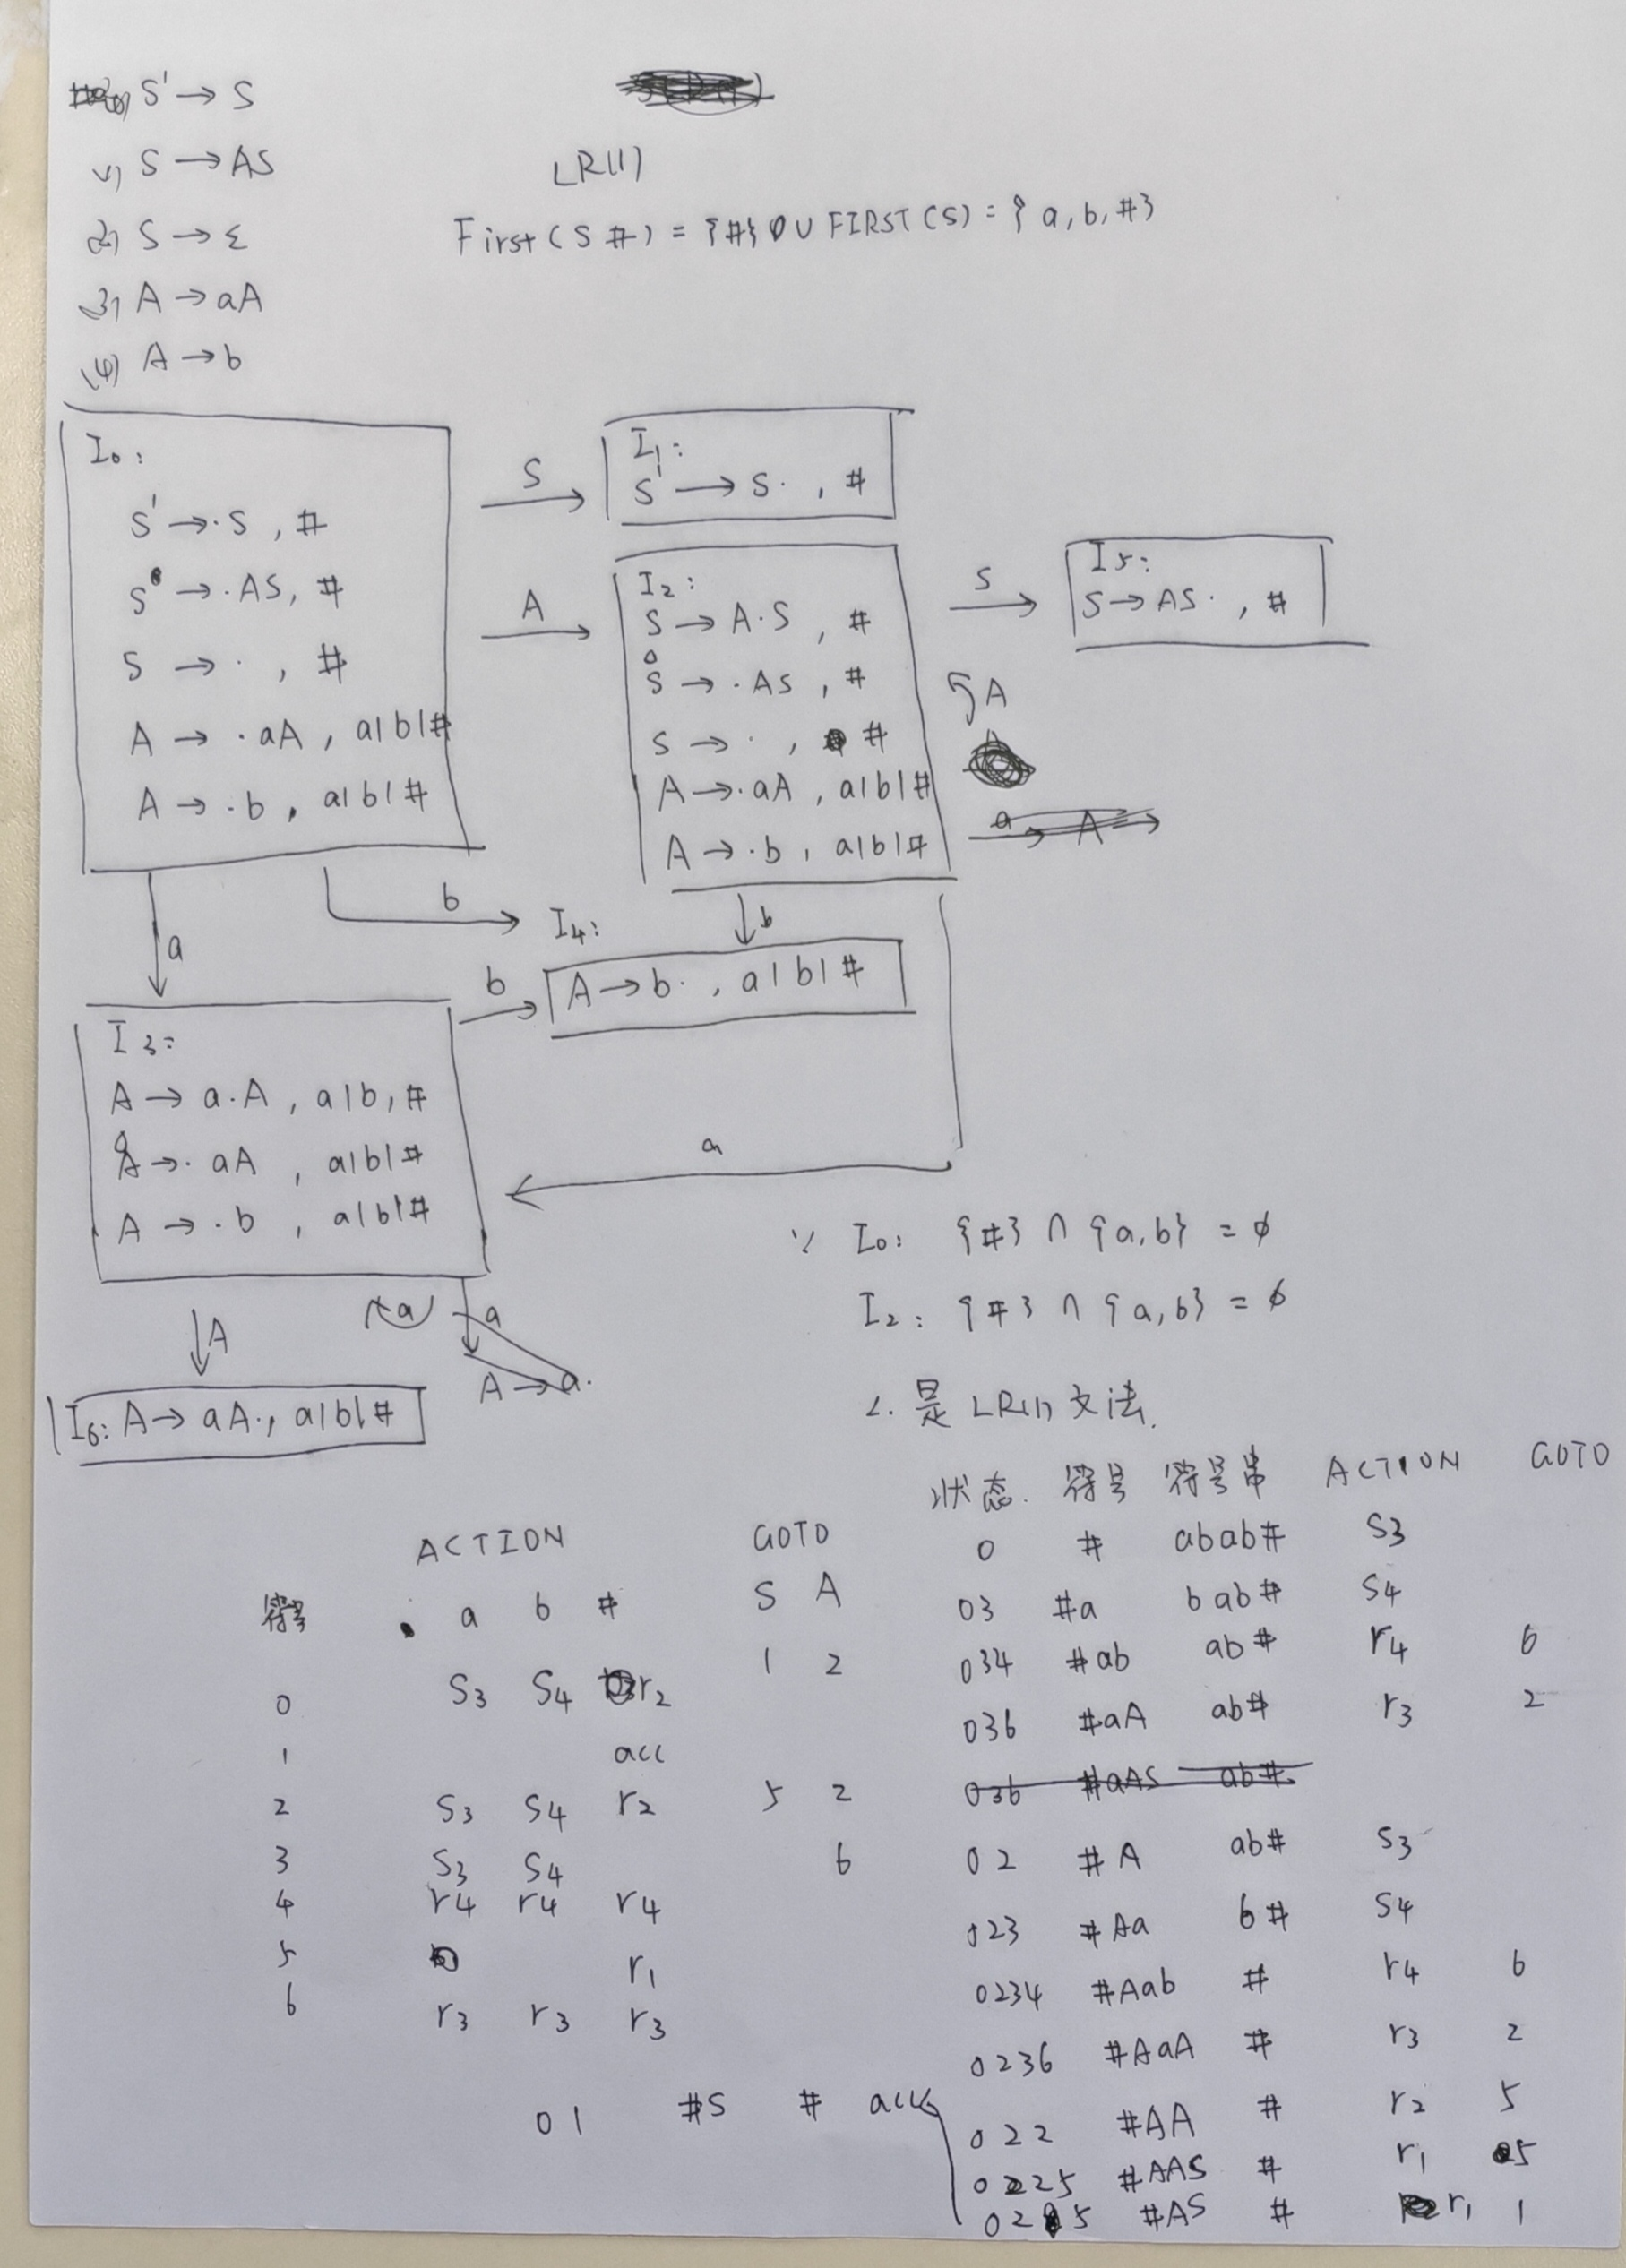 (0) S' → S
(1) S → AS
(2) S → ε
(3) A → aA
(4) A → b
LR(1)
First(S#) = {#} ∪ FIRST(S) = {a,b,#}
I0:
S' → ·S , #
S → ·AS, #
S → · , #
A → ·aA , a|b|#
A → ·b , a|b|#
S
I1:
S' → S· , #
A
I2:
S → A·S , #
S → ·AS , #
S → · , #
A → ·aA , a|b|#
A → ·b , a|b|#
S
I5:
S → AS· , #
A
a A
a
b
b
I4:
A → b· , a|b|#
b
I3:
A → a·A , a|b,#
A → ·aA , a|b|#
A → ·b , a|b|#
a
a
a
A → a·
A
I6: A → aA·, a|b|#
∵ I0: {#} ∩ {a,b} = ϕ
I2: {#} ∩ {a,b} = ϕ
∴ 是 LR(1) 文法.
ACTION GOTO
符号 a b # S A
0 S3 S4 r2 1 2
1 acc
2 S3 S4 r2 5 2
3 S3 S4 6
4 r4 r4 r4
5 r1
6 r3 r3 r3
状态 符号 符号串 ACTION GOTO
0 # abab# S3
03 #a bab# S4
034 #ab ab# r4 6
036 #aA ab# r3 2
036 #aAS ab#
02 #A ab# S3
023 #Aa b# S4
0234 #Aab # r4 6
0236 #AaA # r3 2
022 #AA # r2 5
0225 #AAS # r1 5
025 #AS # r1 1
01 #S # acc